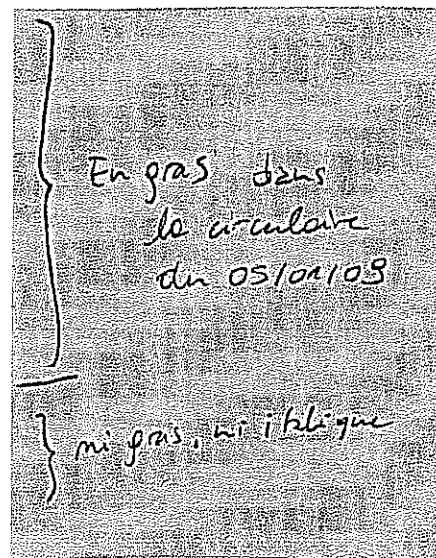 En gras dans
la circulaire
du 05/01/09
ni gras, ni italique